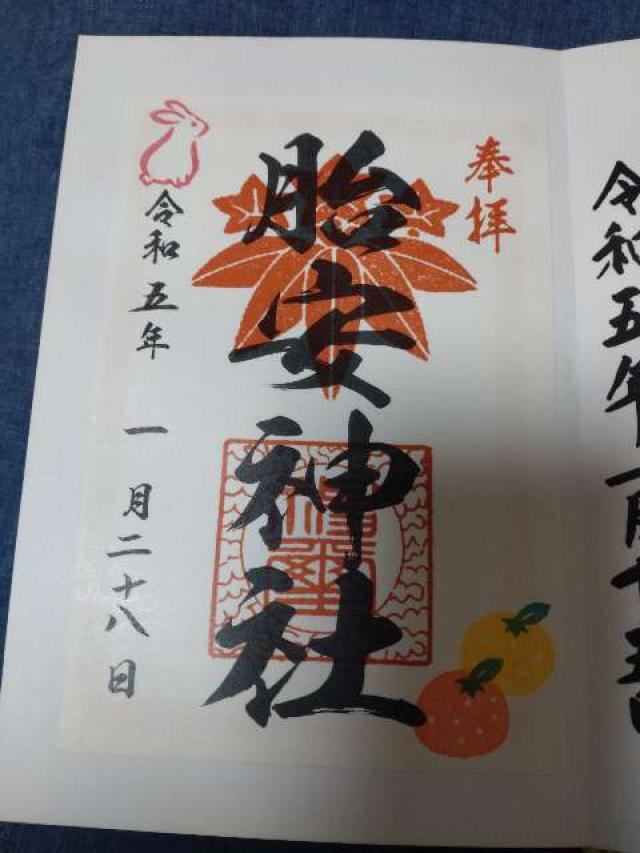 奉拝
胎安神社
令和五年 一月二十八日
令和五年一月十五日